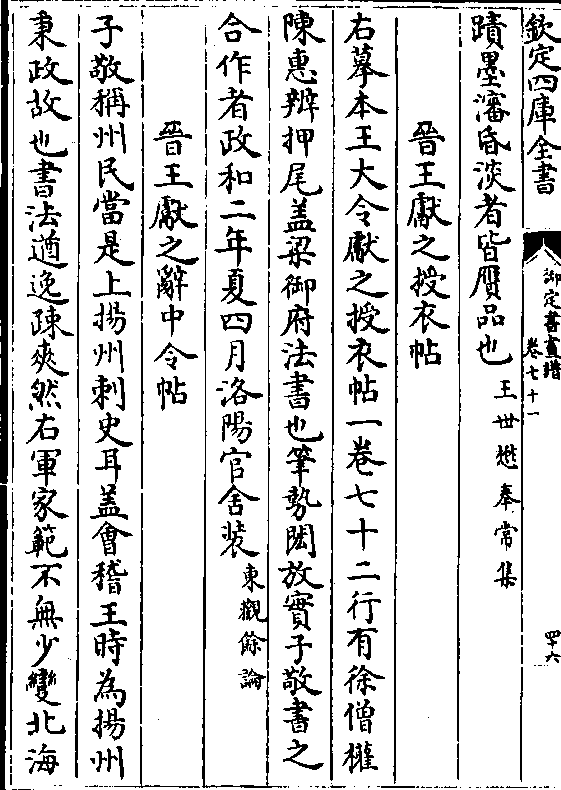 欽定四庫全書
御定書畫譜
卷七十一
四十六
蹟墨瀋昏淡者皆贋品也 王世懋奉常集
晉王獻之授衣帖
右摹本王大令獻之授衣帖一卷七十二行有徐僧權
陳惠辨押尾盖梁御府法書也筆勢閎放實子敬書之
合作者政和二年夏四月洛陽官舍裝 東觀餘論
晉王獻之辭中令帖
子敬稱州民當是上揚州刺史耳盖會稽王時為揚州
秉政故也書法遒逸疎爽然右軍家範不無少變北海